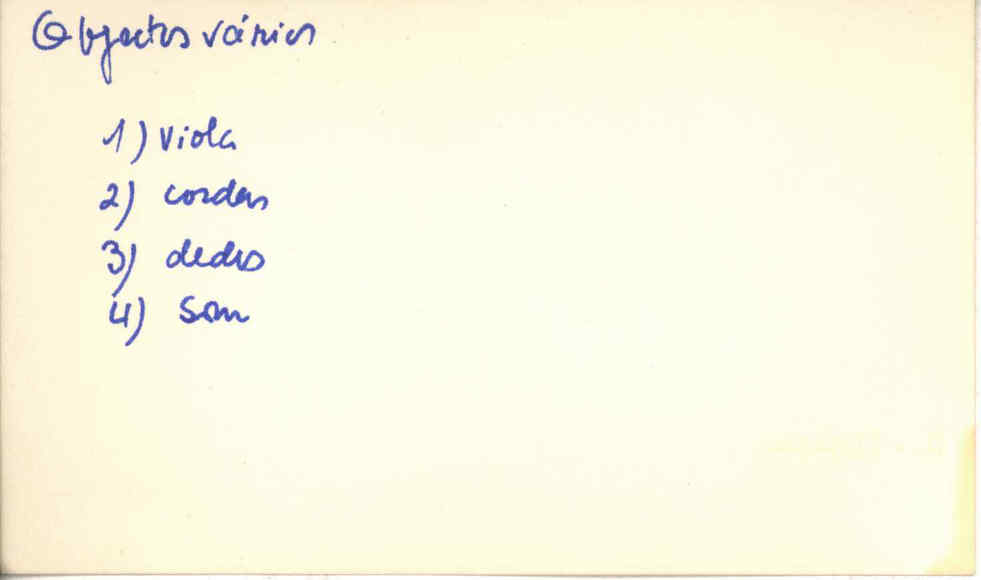 Objectos vários
1) viola
2) cordas
3) dedos
4) som